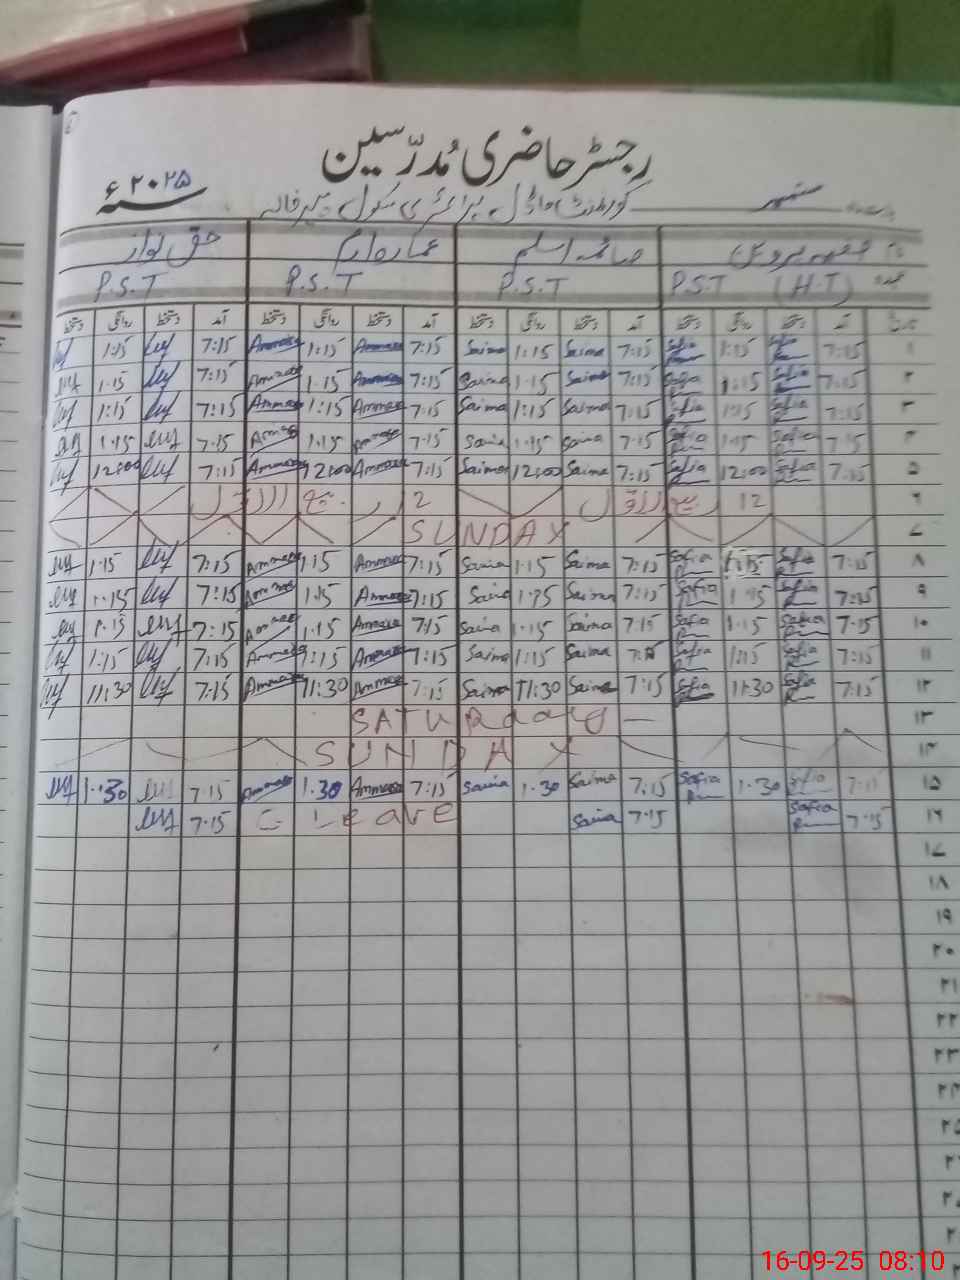 رجسٹر حاضری مُدرّسین
۲۰۲۵ سنہ ء
ستمبر گورنمنٹ ماڈل پرائمری سکول
صائمہ اسلم حق نواز
P.S.T (H.T) P.S.T P.S.T P.S.T
آمد دستخط روانگی دستخط آمد دستخط روانگی دستخط آمد دستخط روانگی دستخط آمد دستخط روانگی دستخط
۱ 7:15 Safia 1:15 Safia 7:15 Saima 1:15 Saima 7:15 Ammara 1:15 Ammara 7:15 1:15
۲ 7:15 Safia 1:15 Safia 7:15 Saima 1·15 Saima 7:15 Ammara 1·15 Ammara 7:15 1·15
۳ 7:15 Safia 1:15 Safia 7:15 Saima 1:15 Saima 7:15 Ammara 1:15 Ammara 7:15 1:15
۴ 7·15 Safia 1·15 Safia 7·15 Saima 1·15 Saima 7·15 Ammara 1·15 Ammara 7·15 1·15
۵ 7:15 Safia 12:00 Safia 7:15 Saima 12:00 Saima 7:15 Ammara 12:00 Ammara 7:15 12:00
۶ 12 ربیع الاول 12 ربیع الاول
۷ SUNDAY
۸ 7:15 Safia 1:15 Safia 7:15 Saima 1·15 Saima 7:15 Ammara 1:15 Ammara 7:15 1·15
۹ 7:15 Safia 1·15 Safia 7:15 Saima 1·15 Saima 7:15 Ammara 1·15 Ammara 7:15 1·15
۱۰ 7·15 Safia 1·15 Safia 7·15 Saima 1·15 Saima 7:15 Ammara 1·15 Ammara 7:15 1·15
۱۱ 7:15 Safia 1:15 Safia 7:15 Saima 1:15 Saima 7:15 Ammara 1:15 Ammara 7:15 1:15
۱۲ 7:15 Safia 11:30 Safia 7:15 Saima 11:30 Saima 7:15 Ammara 11:30 Ammara 7:15 11:30
۱۳ SATURdAy
۱۴ SUNDAY
۱۵ 7:15 Safia 1·30 Safia 7:15 Saima 1·30 Saima 7:15 Ammara 1·30 Ammara 7·15 1·30
۱۶ 7·15 Safia 7·15 Saima C-Leave 7·15
۱۷
۱۸
۱۹
۲۰
۲۱
۲۲
۲۳
۲۴
16-09-25 08:10